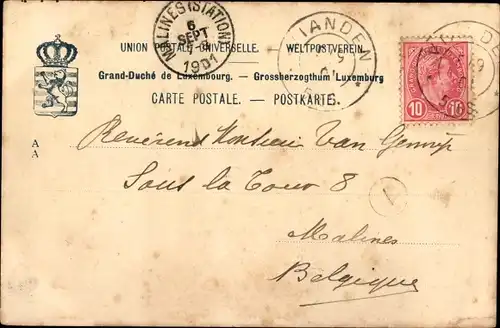 MALINES (STATION)
6
SEPT
1901
VIANDEN
UNION POSTALE UNIVERSELLE. — WELTPOSTVEREIN.
Grand-Duché de Luxembourg. — Grossherzogthum Luxemburg
CARTE POSTALE. — POSTKARTE.
10 10
A
A
Révérend Monsieur Van Gennip
Sous la Tour 8
Malines
Belgique